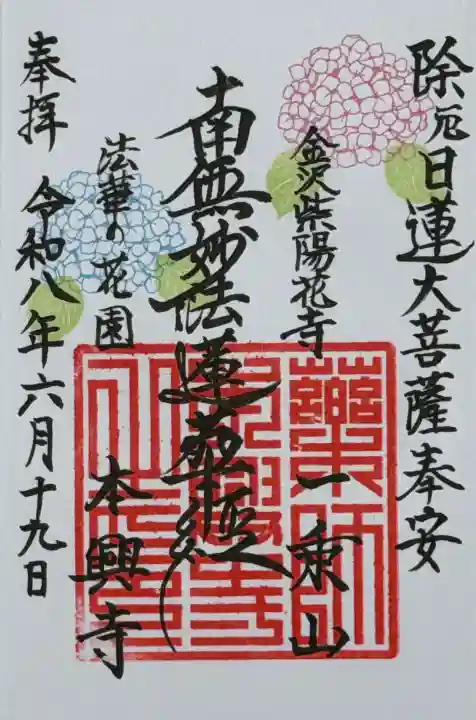 除厄日蓮大菩薩奉安
金沢紫陽花寺
一乗山
南無妙法蓮華経
法華の花園
本興寺
奉拝
令和八年六月十九日